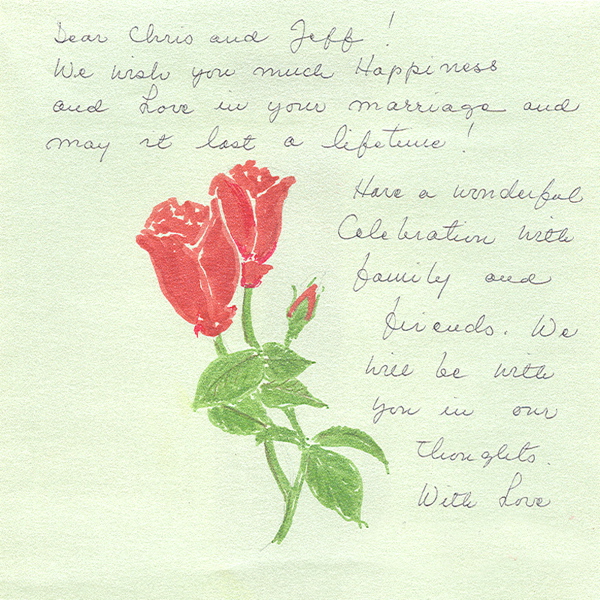 Dear Chris and Jeff!
We wish you much Happiness
and Love in your marriage and
may it last a lifetime!
Have a wonderful
Celebration with
family and
friends. We
will be with
you in our
thoughts.
With Love